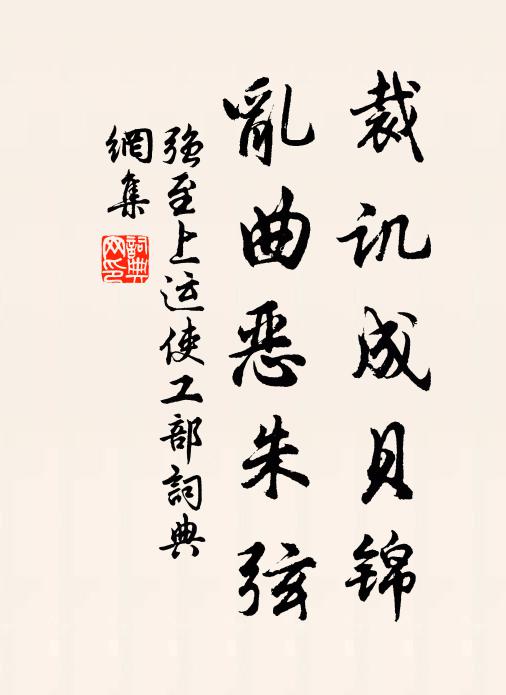 裁讥成贝锦
亂曲恶朱弦
强至上运使工部詞典
網集
詞典
网印